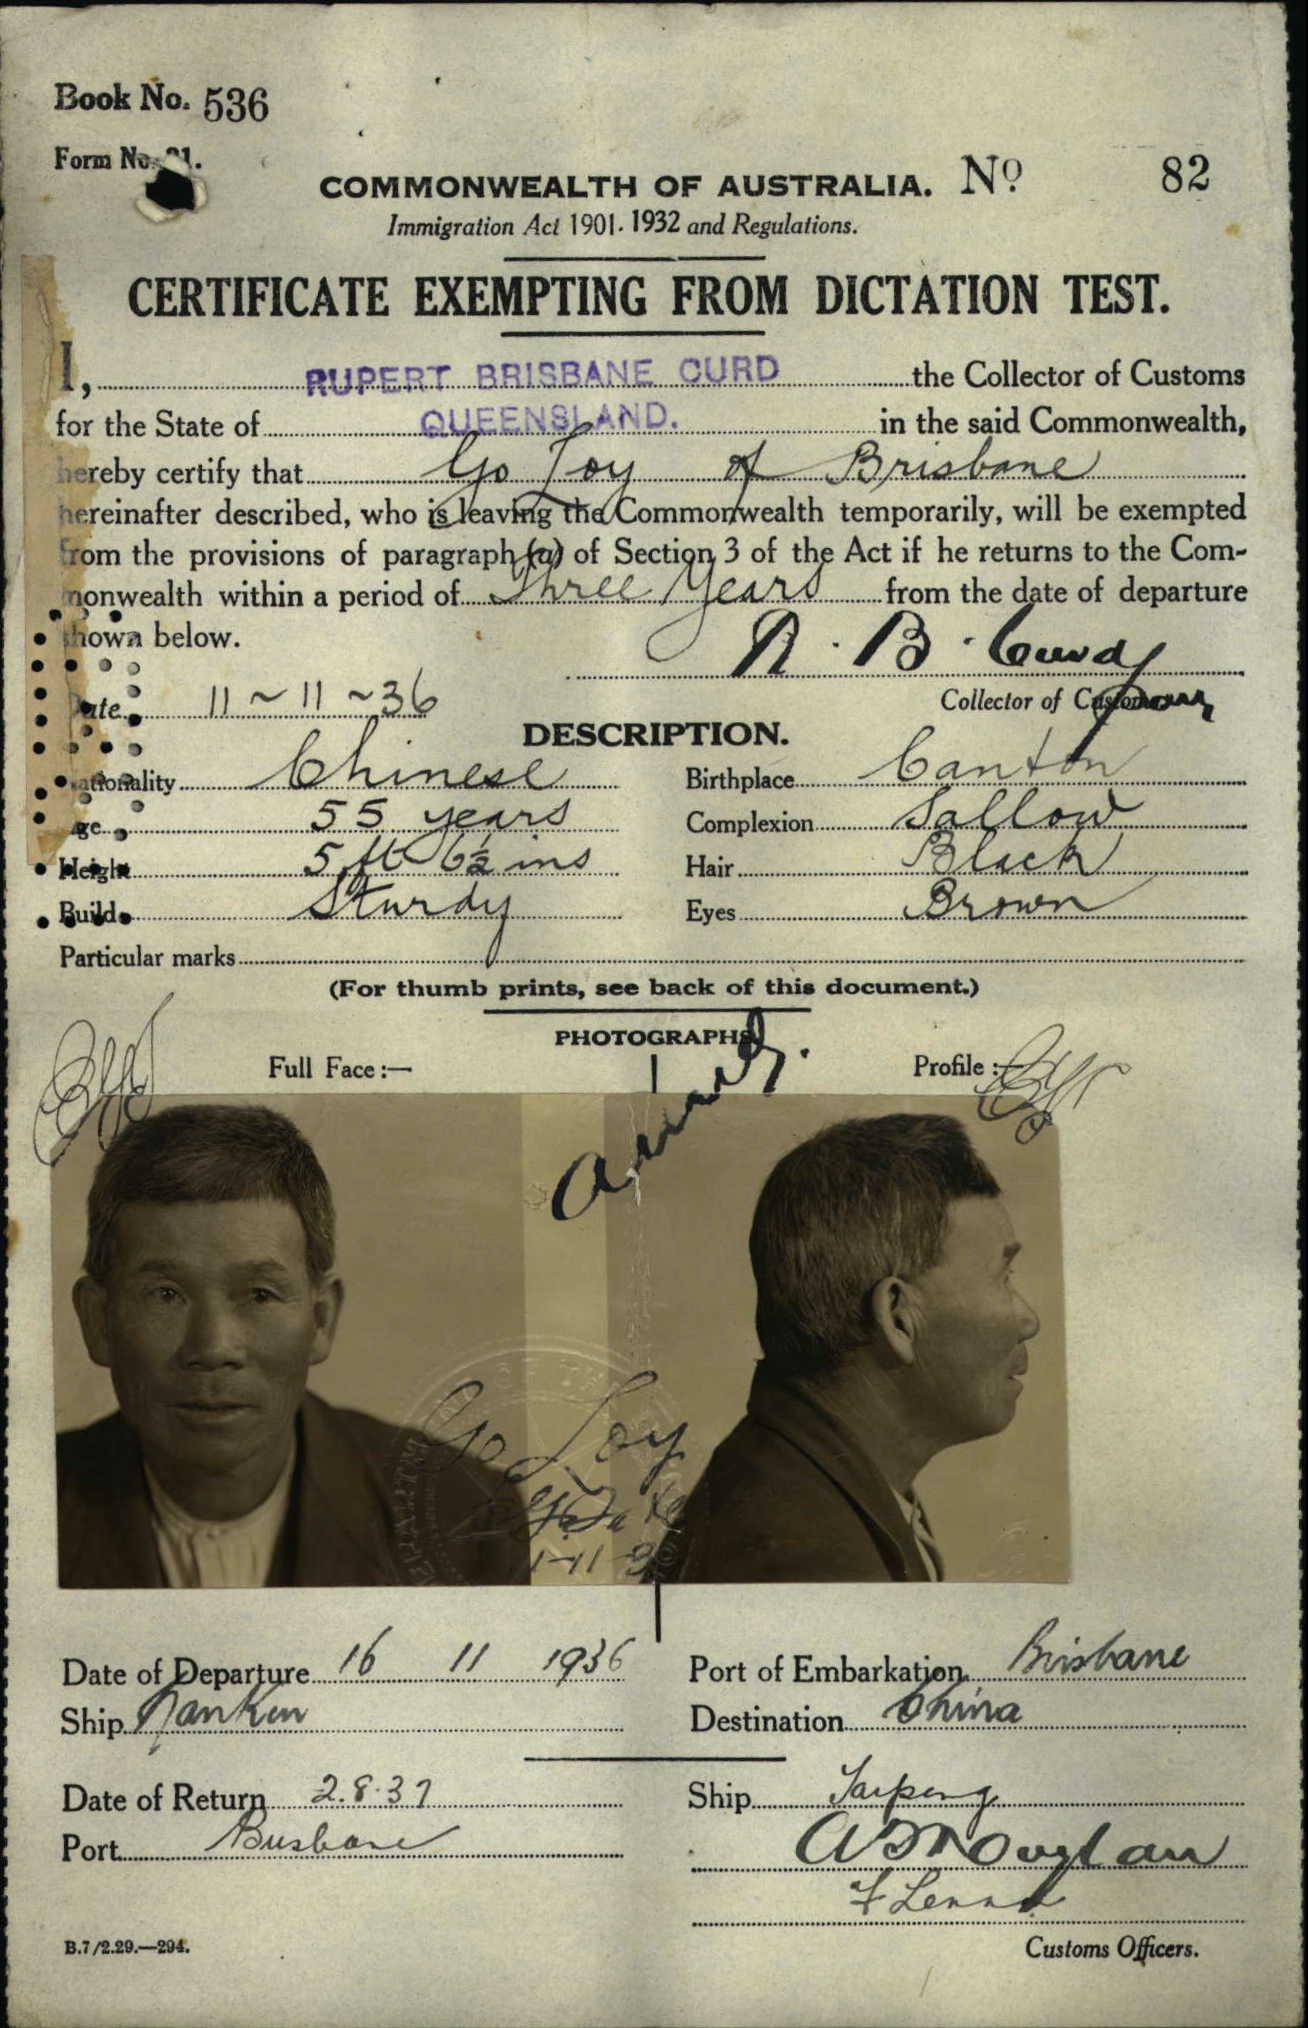 Book No. 536
Form No. 21.
COMMONWEALTH OF AUSTRALIA. No 82
Immigration Act 1901-1932 and Regulations.
CERTIFICATE EXEMPTING FROM DICTATION TEST.
I, RUPERT BRISBANE CURD the Collector of Customs
for the State of QUEENSLAND. in the said Commonwealth,
hereby certify that Go Loy of Brisbane
hereinafter described, who is leaving the Commonwealth temporarily, will be exempted
from the provisions of paragraph (a) of Section 3 of the Act if he returns to the Com-
monwealth within a period of Three Years from the date of departure
shown below.
R. B. Curd
Date 11~11~36 Collector of Customs
DESCRIPTION.
Nationality Chinese Birthplace Canton
Age 55 years Complexion Sallow
Height 5 ft 6½ ins Hair Black
Build Sturdy Eyes Brown
Particular marks
(For thumb prints, see back of this document.)
PHOTOGRAPHS.
Full Face:— Profile:—
Go Loy
Date of Departure 16 11 1936 Port of Embarkation Brisbane
Ship Nankin Destination China
Date of Return 2.8.37 Ship Taiping
Port Brisbane
B.7/2.29.—294. Customs Officers.